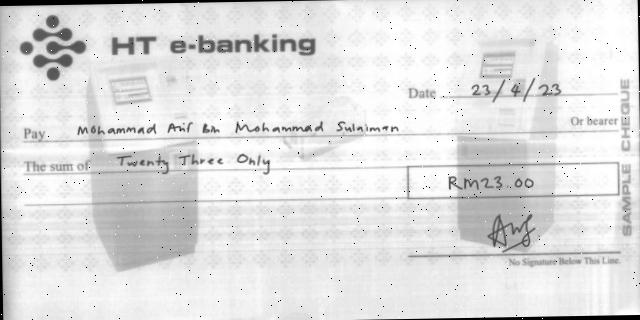 HT e-banking
Date 23/4/23
Pay. Mohammad Arif Bin Mohammad Sulaiman
Or bearer
The sum of Twenty Three Only
RM23.00
No Signature Below This Line.
SAMPLE CHEQUE